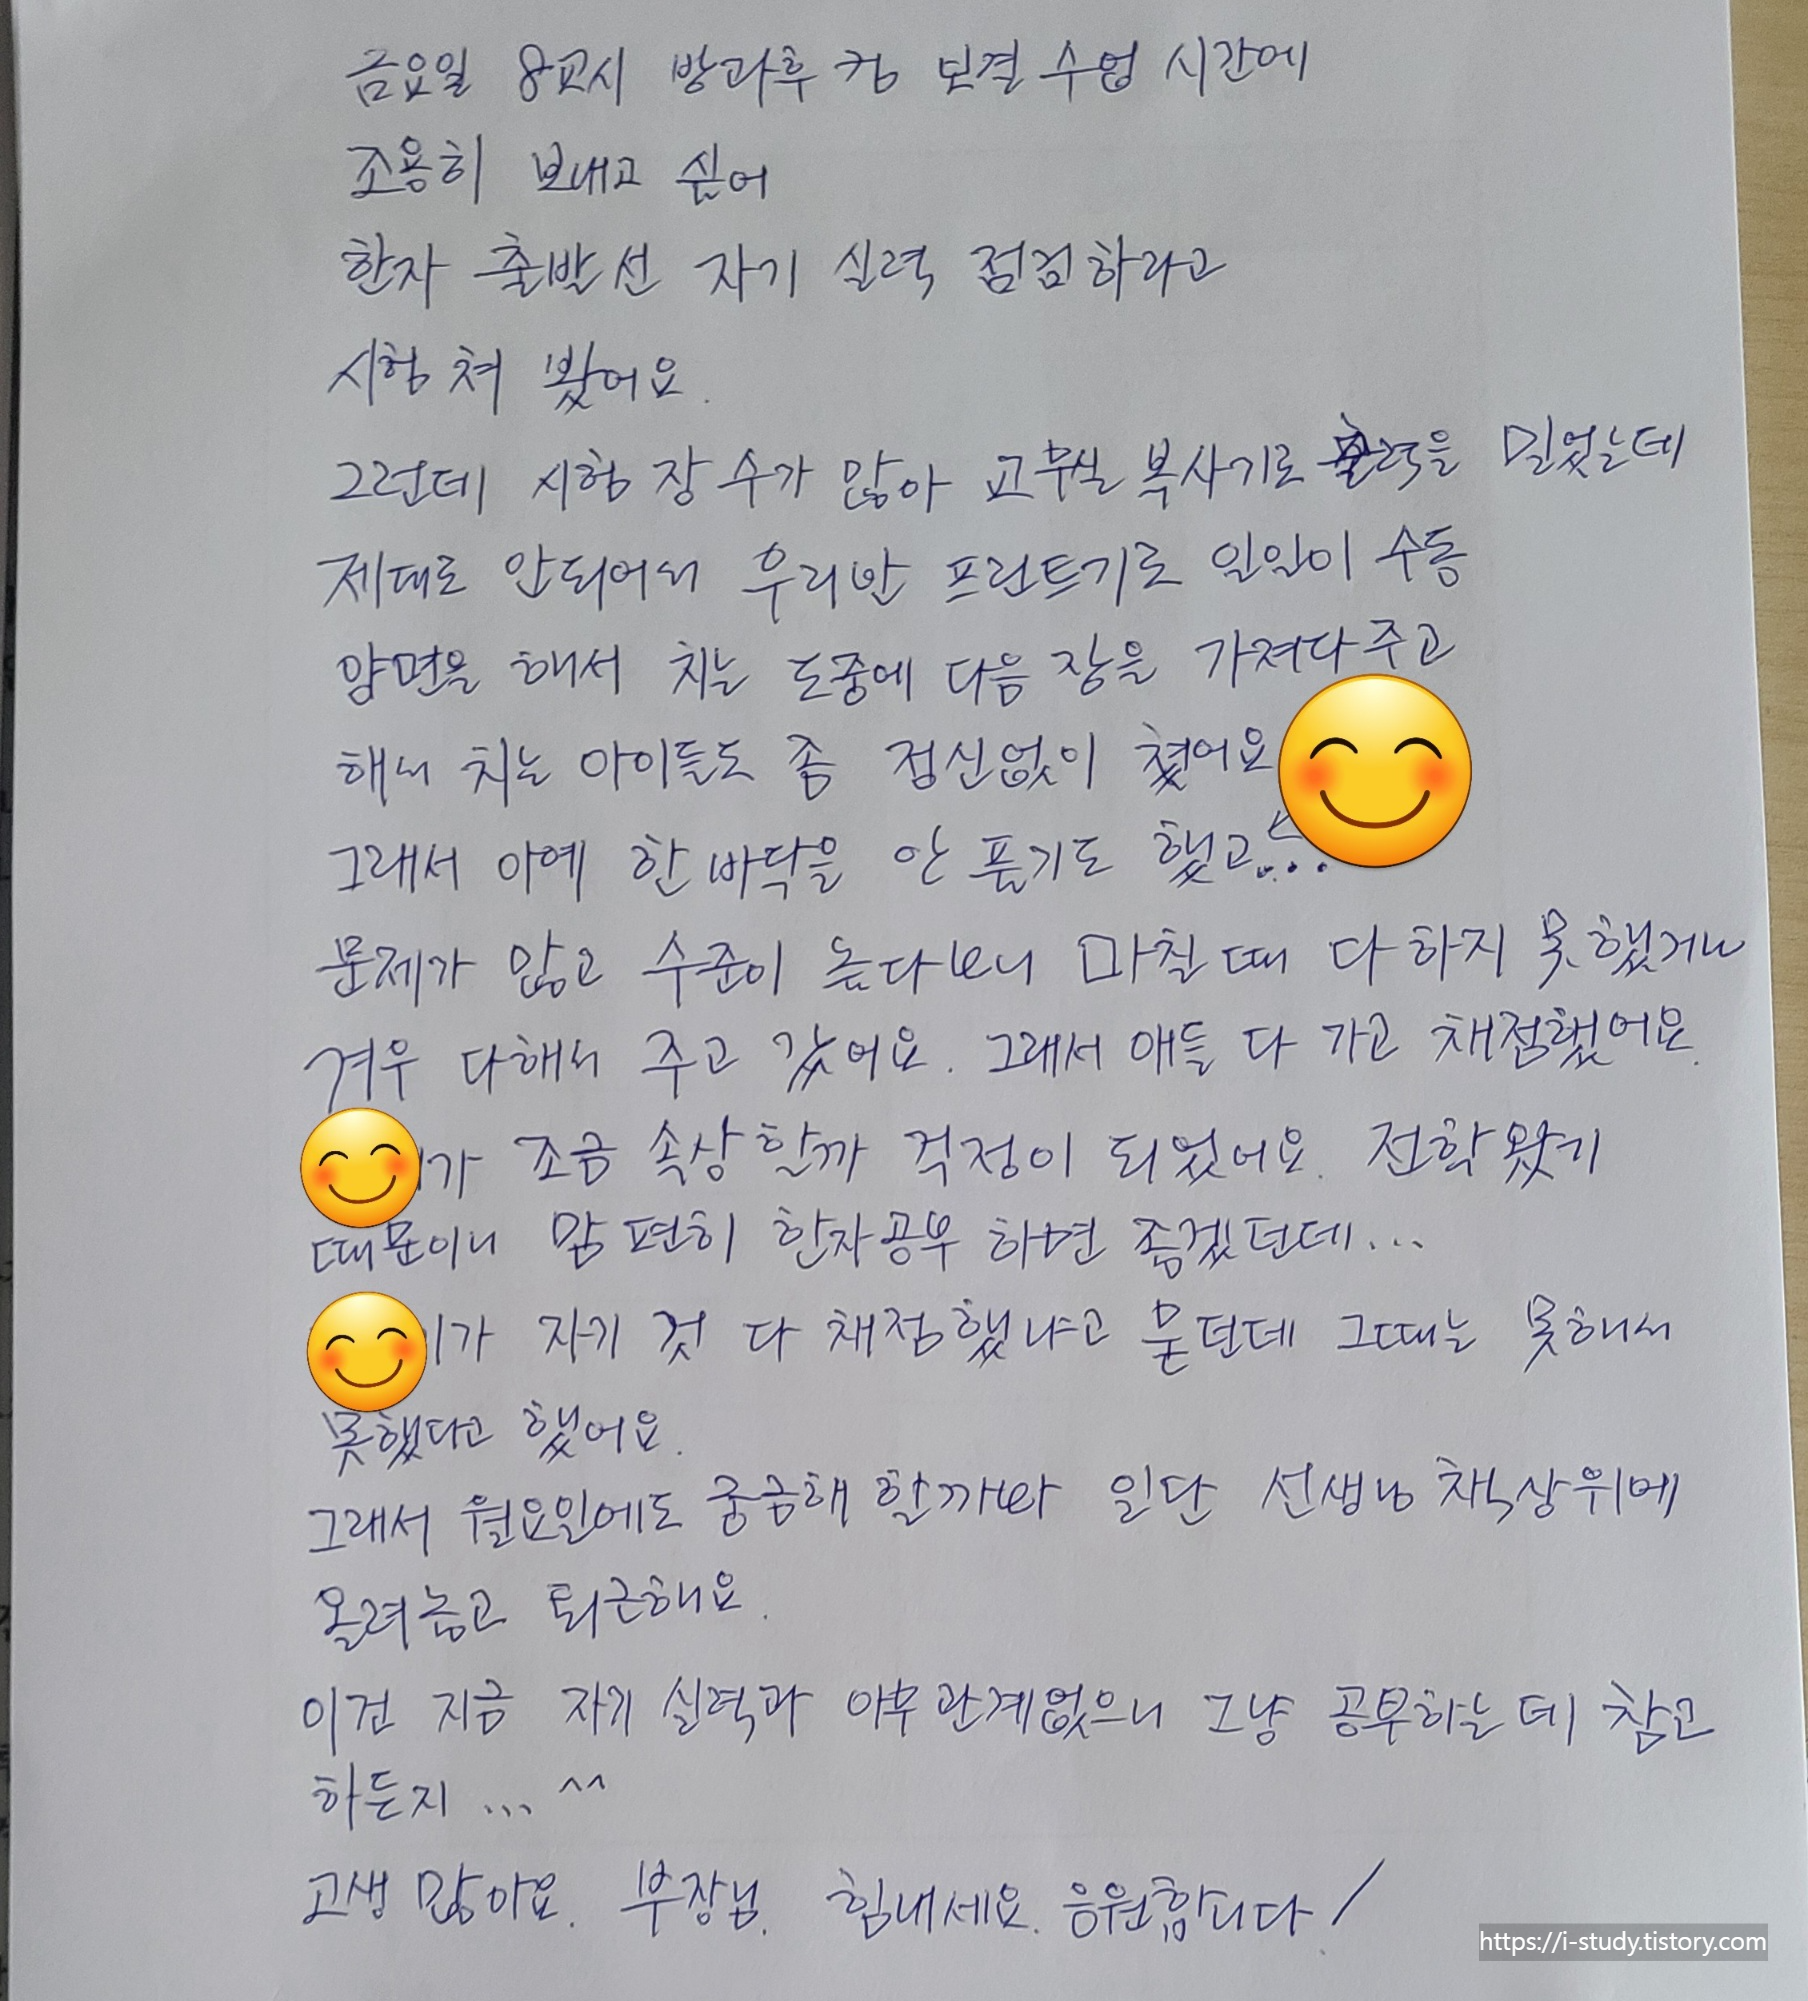 금요일 8교시 방과후 컴 보결 수업 시간에
조용히 보내고 싶어
한자 출발선 자기 실력 점검하라고
시험 쳐 봤어요.
그런데 시험 장 수가 많아 교무실 복사기로 출력을 밀었는데
제대로 안되어서 우리반 프린트기로 일일이 수동
양면을 해서 치는 도중에 다음 장을 가져다주고
해서 치는 아이들도 좀 정신없이 쳤어요
그래서 아예 한 바닥을 안 풀기도 했고...
문제가 많고 수준이 높다보니 마칠 때 다 하지 못했거나
겨우 다해서 주고 갔어요. 그래서 애들 다 가고 채점했어요.
가 조금 속상할까 걱정이 되었어요. 전학왔기
때문이니 맘 편히 한자공부 하면 좋겠던데...
이가 자기 것 다 채점했냐고 묻던데 그때는 못해서
못했다고 했어요.
그래서 월요일에도 궁금해 할까봐 일단 선생님 책상위에
올려놓고 퇴근해요.
이건 지금 자기 실력과 아무관계없으니 그냥 공부하는데 참고
하든지... ^^
고생 많아요. 부장님. 힘내세요. 응원합니다!
https://i-study.tistory.com